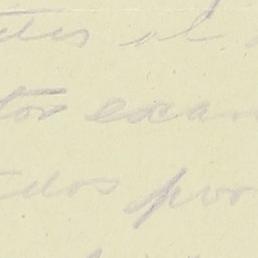 tes al
tor exam
dos por